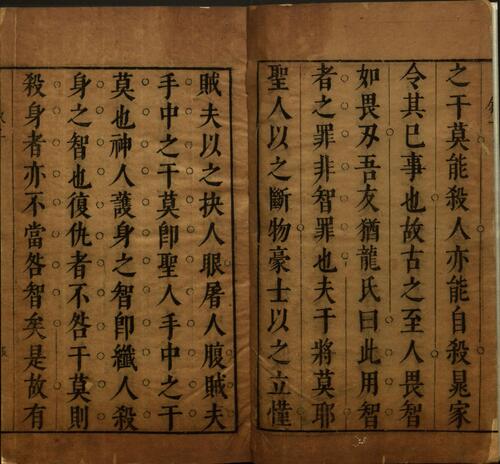 之干莫能殺人亦能自殺晁家
令其巳事也故古之至人畏智
如畏刄吾友猶龍氏曰此用智
者之罪非智罪也夫干將莫耶
聖人以之斷物豪士以之立慬
賊夫以之抉人眼屠人腹賊夫
手中之干莫卽聖人手中之干
莫也神人護身之智卽纖人殺
身之智也復仇者不咎干莫則
殺身者亦不當咎智矣是故有